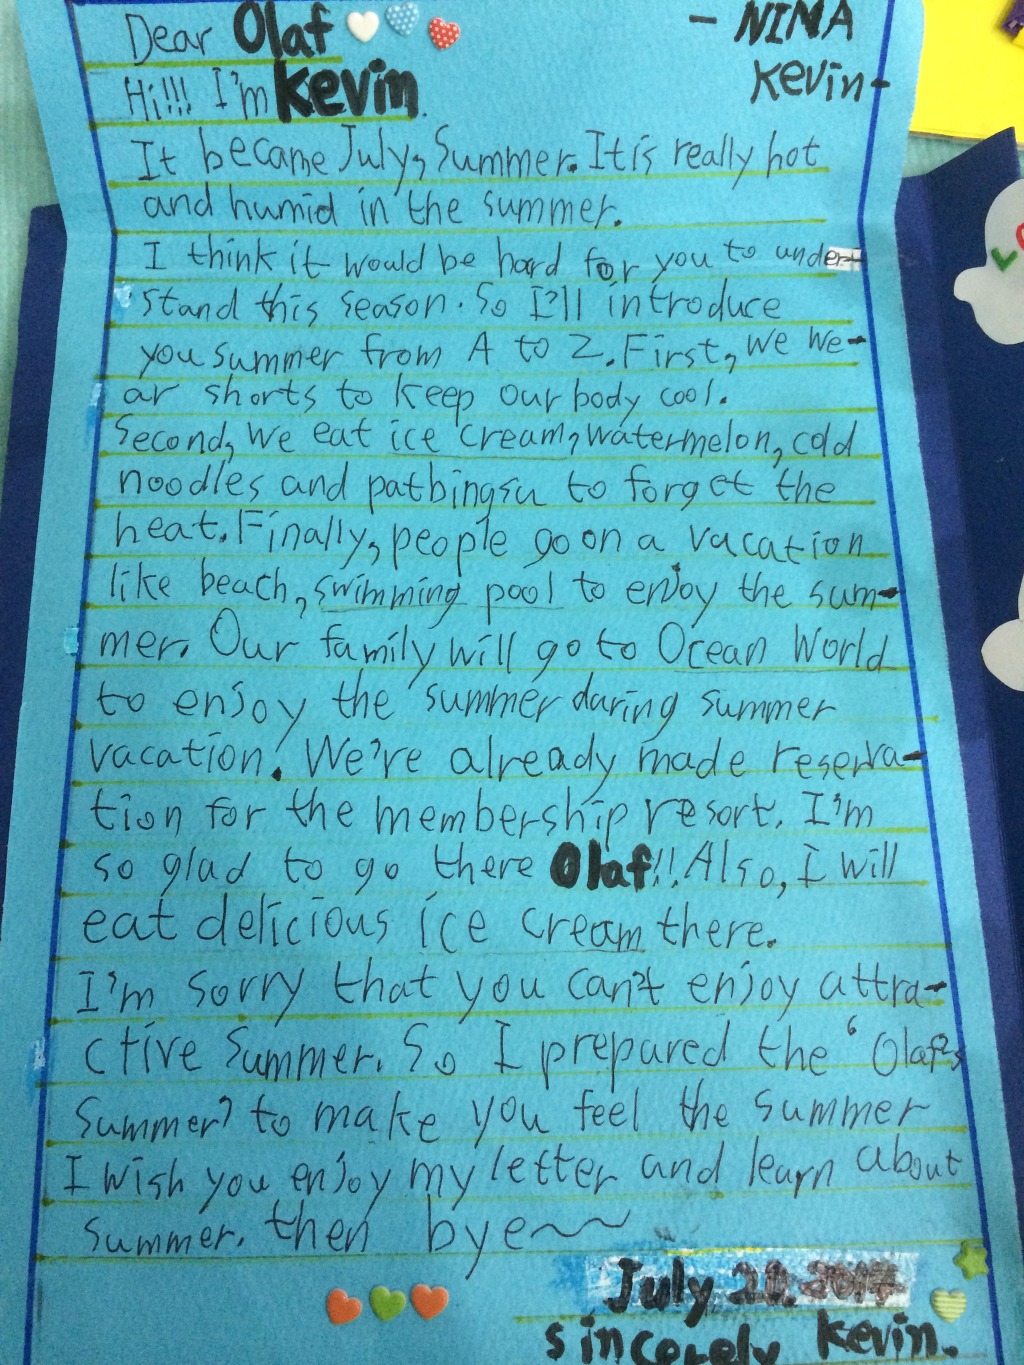 Dear Olaf
- NINA
Kevin -
Hi!!! I'm Kevin.
It became July, Summer. It is really hot
and humid in the summer.
I think it would be hard for you to under-
stand this season. So I'll introduce
you summer from A to Z. First, we we-
ar shorts to keep our body cool.
Second, we eat ice cream, watermelon, cold
noodles and patbingsu to forget the
heat. Finally, people go on a vacation
like beach, swimming pool to enjoy the sum-
mer. Our family will go to Ocean World
to enjoy the summer daring summer
vacation. We're already made reserva-
tion for the membership resort. I'm
so glad to go there Olaf!! Also, I will
eat delicious ice cream there.
I'm sorry that you can't enjoy attra-
ctive summer. So I prepared the 'Olaf's
Summer' to make you feel the summer
I wish you enjoy my letter and learn about
summer. then bye~~
July
sincerely Kevin.